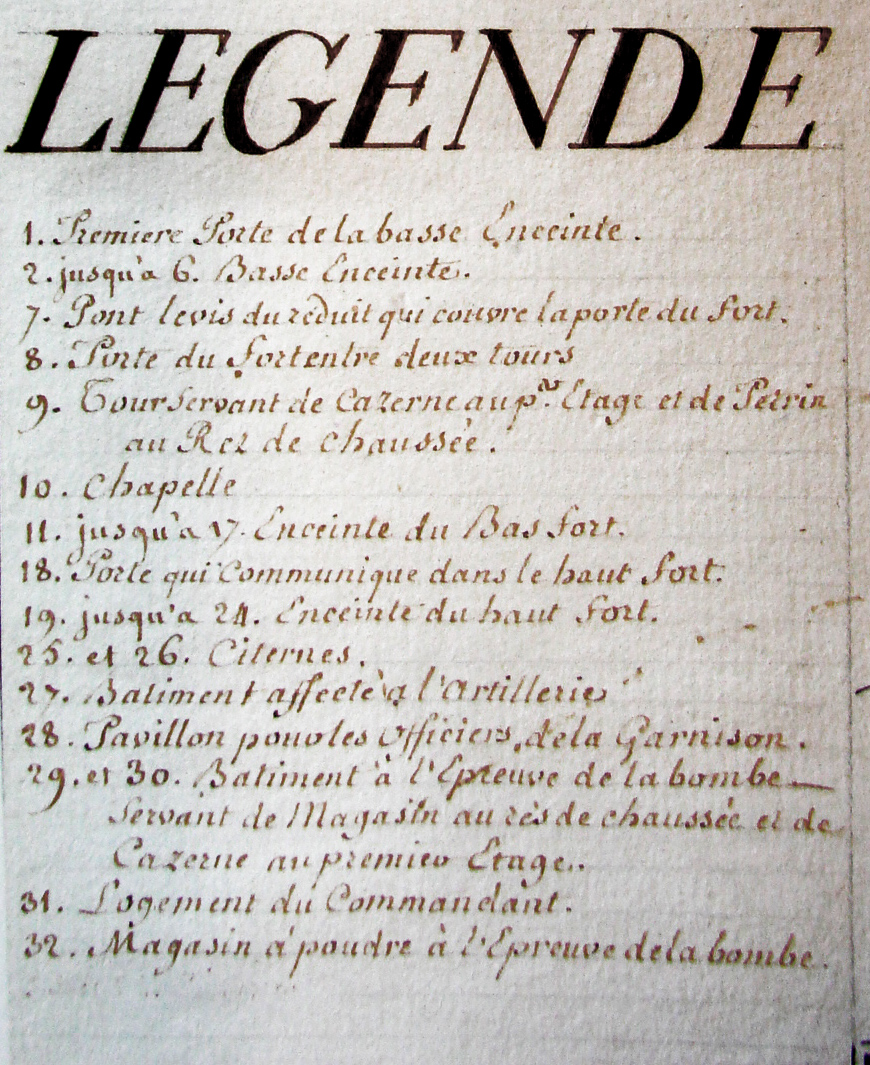 LEGENDE
1. Premiere Porte de la basse Enceinte.
2. jusqu'a 6. Basse Enceinte.
7. Pont levis du réduit qui couvre la porte du fort.
8. Porte du fort entre deux tours
9. Tour Servant de Cazerne au pr. Etage et de Petrin
au Rez de chaussée.
10. Chapelle
11. jusqu'a 17. Enceinte du Bas fort.
18. Porte qui Communique dans le haut fort.
19. jusqu'a 24. Enceinte du haut fort.
25. et 26. Citernes.
27. Batiment affecté a l'Artillerie
28. Pavillon pour les Officiers de la Garnison.
29. et 30. Batiment à l'Epreuve de la bombe
Servant de Magasin au rès de chaussée et de
Cazerne au premier Etage.
31. Logement du Commandant.
32. Magasin a poudre à l'Epreuve de la bombe.